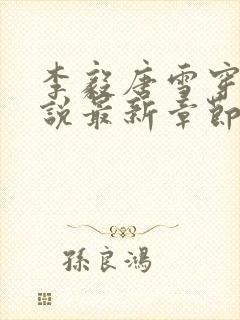 李毅唐雪穿
說最新章節
孫良鴻